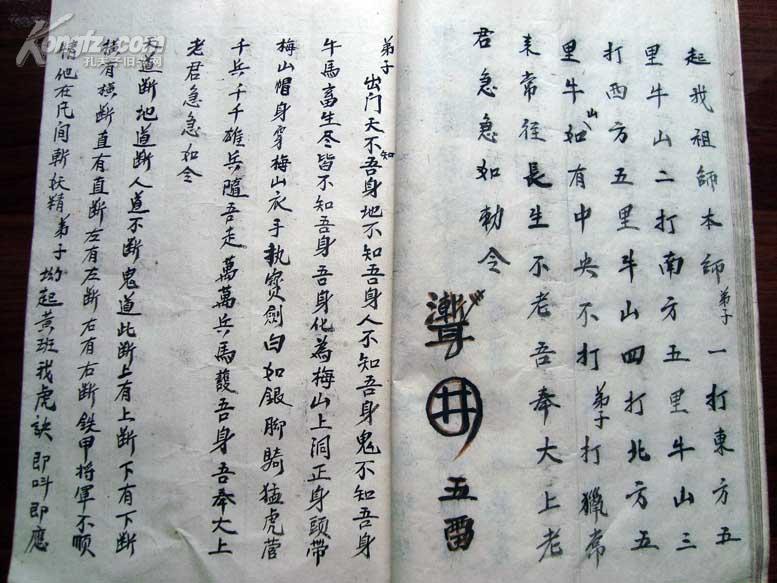 起我祖師本師弟子一打東方五
里牛山二打南方五里牛山三
打西方五里牛山四打北方五
里牛山如有中央不打弟子打獵常
来常徃長生不老吾奉大上老
君急急如勅令
井
五
弟子出门天不知吾身地不知吾身人不知吾身鬼不知吾身
牛馬畜生冬皆不知吾身吾身化為梅山上洞正身頭带
梅山帽身穿梅山衣手執宝劍白如銀脚騎猛虎营
千兵千千雄兵隨吾走萬萬兵馬護吾身吾奉大上
老君急急如令
天道断地道断人道不断鬼道此断上有上断下有下断
横有横断直有直断左有左断右有右断鉄甲将軍不順
情他在民间斬妖精弟子拗起黄班我虎訣即叫即應
Kongfz.com
孔夫子旧书网